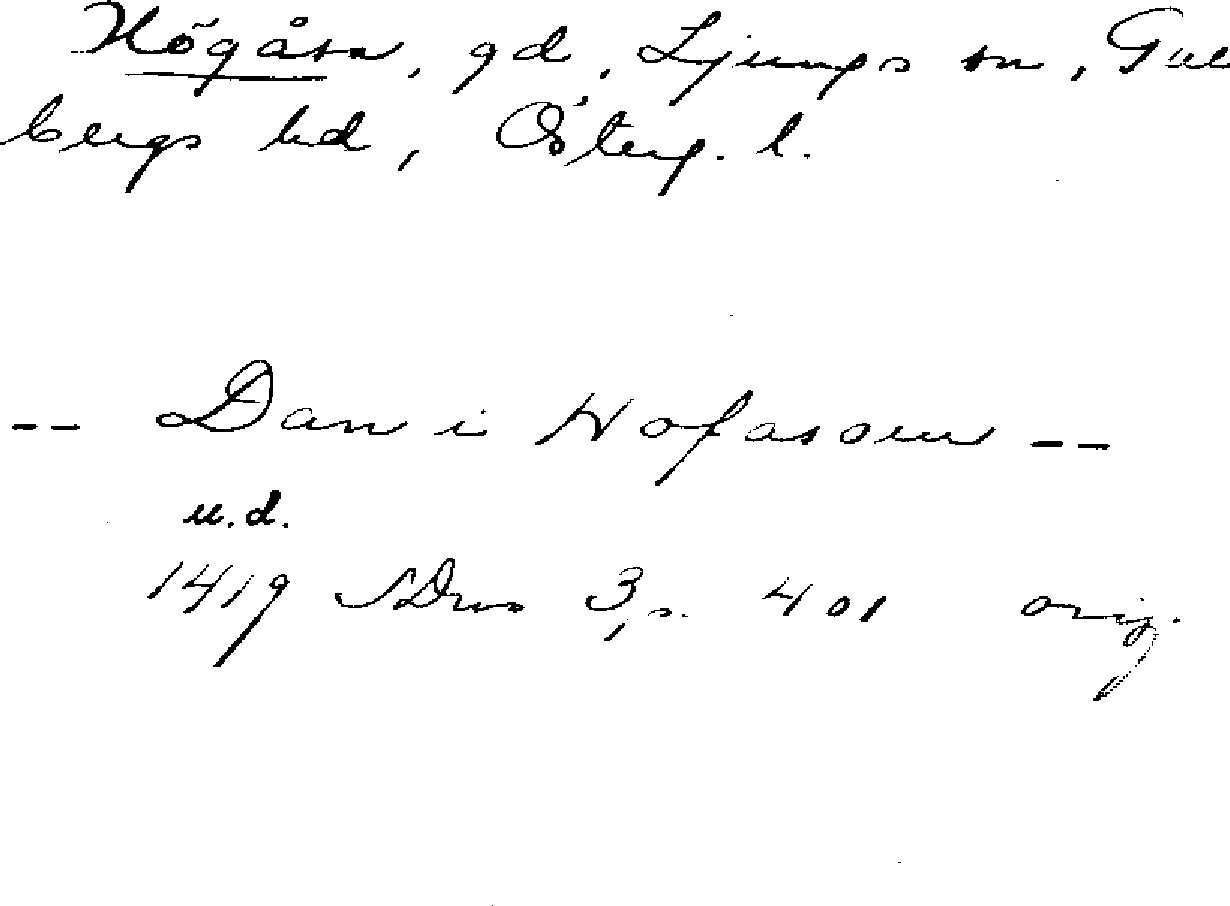 Högåsa, gd, Ljungs sn, Gul
bergs hd, Österg. l.
-- Dan i Hofasom --
u.d.
1419 SDns 3, s. 401 orig.